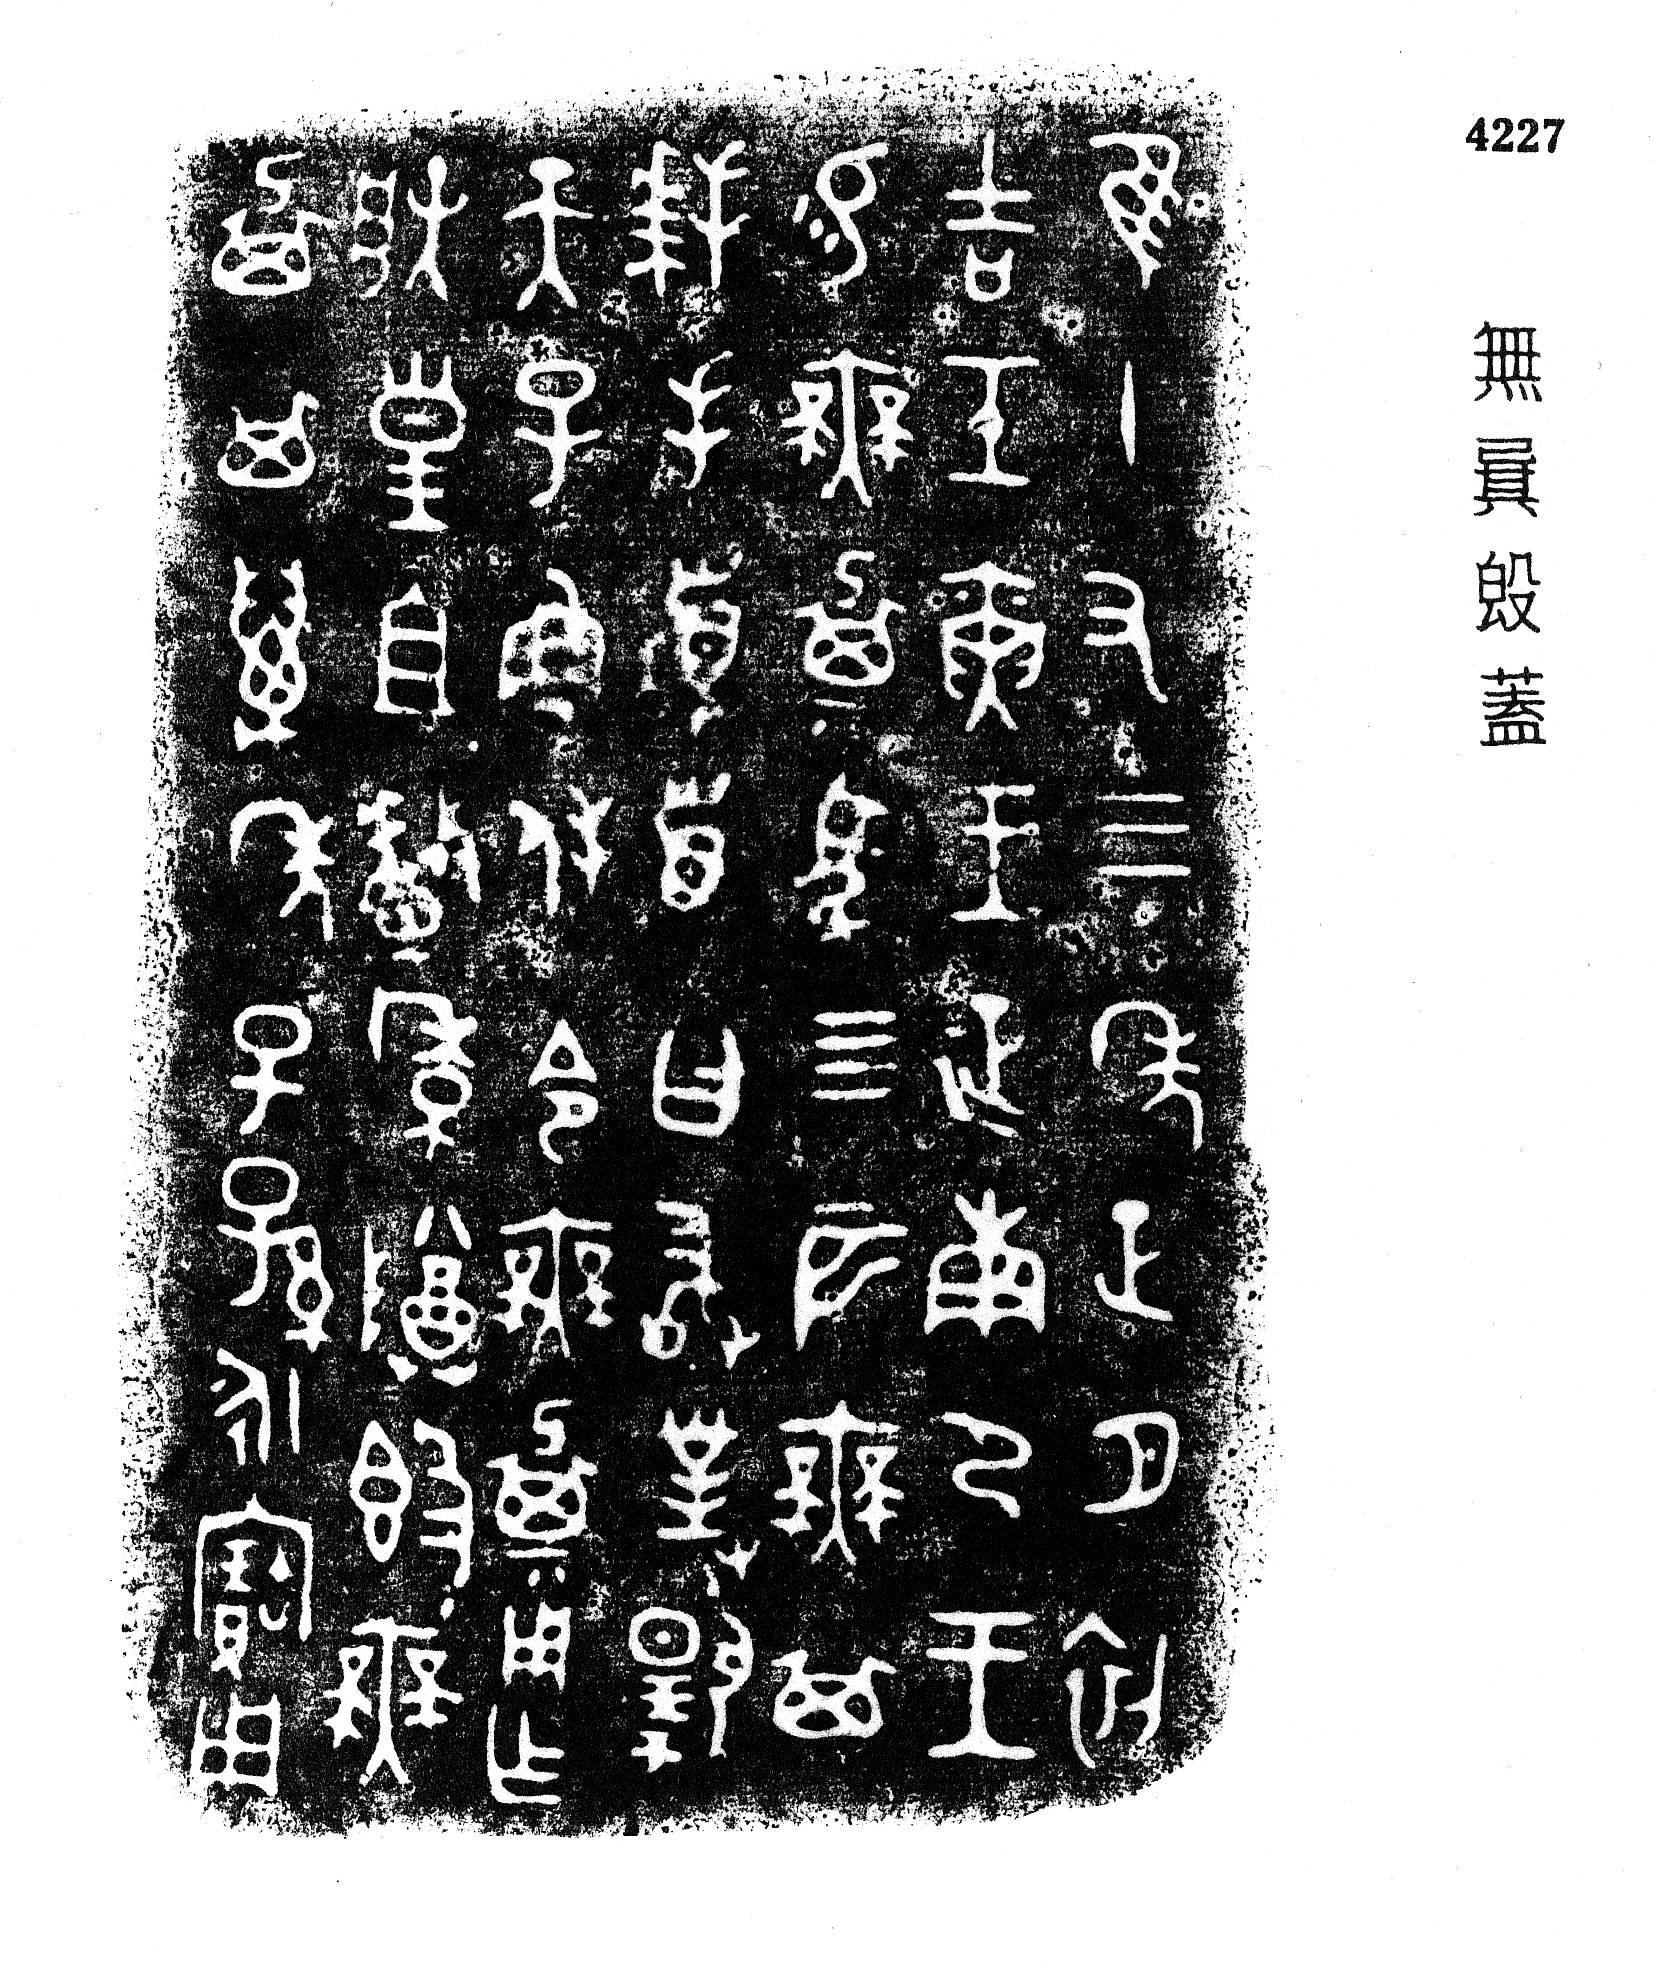 4227
無㠱𣪘蓋
隹十又三年正月初
吉壬寅王征南尸王
易無㠱馬四匹無㠱
拜手𩒨首曰敢對揚
天子魯休令無㠱用乍
朕皇且釐季𬯚𣪘無
㠱其萬年子孫永寶用